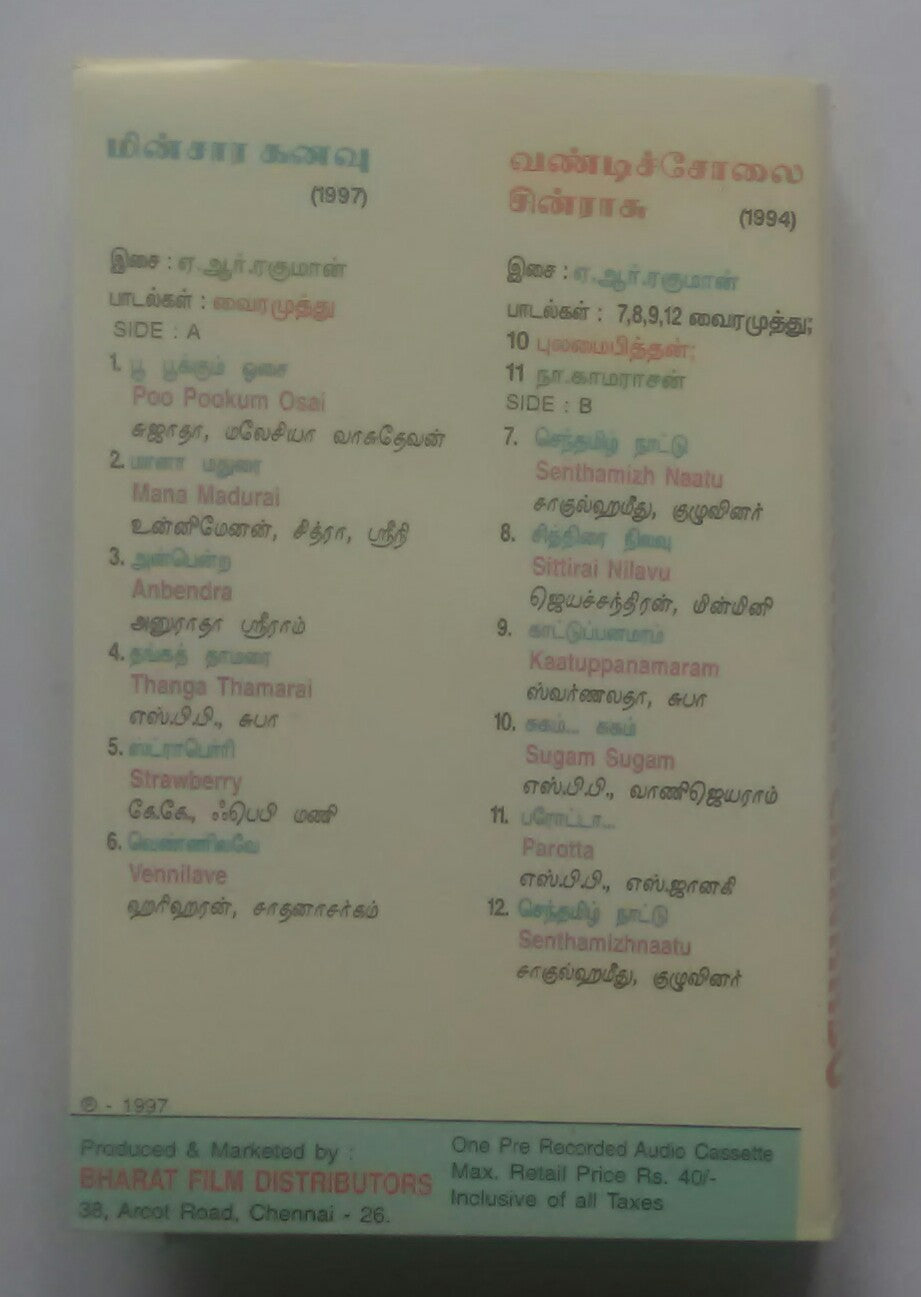 மின்சார கனவு
(1997)
இசை : ஏ.ஆர்.ரகுமான்
பாடல்கள் : வைரமுத்து
SIDE : A
1. பூ பூக்கும் ஓசை
Poo Pookum Osai
சுஜாதா, மலேசியா வாசுதேவன்
2. மானா மதுரை
Mana Madurai
உன்னிமேனன், சித்ரா, ஸ்ரீநி
3. அன்பென்ற
Anbendra
அனுராதா ஸ்ரீராம்
4. தங்கத் தாமரை
Thanga Thamarai
எஸ்.பி.பி., சுபா
5. ஸ்ட்ராபெர்ரி
Strawberry
கே.கே., ஃபெபி மணி
6. வெண்ணிலவே
Vennilave
ஹரிஹரன், சாதனாசர்கம்
வண்டிச்சோலை
சின்ராசு
(1994)
இசை : ஏ.ஆர்.ரகுமான்
பாடல்கள் : 7,8,9,12 வைரமுத்து;
10 புலமைபித்தன்;
11 நா.காமராசன்
SIDE : B
7. செந்தமிழ் நாட்டு
Senthamizh Naatu
சாகுல்ஹமீது, குழுவினர்
8. சித்திரை நிலவு
Sittirai Nilavu
ஜெயச்சந்திரன், மின்மினி
9. காட்டுப்பனமரம்
Kaatuppanamaram
ஸ்வர்ணலதா, சுபா
10. சுகம்... சுகம்
Sugam Sugam
எஸ்.பி.பி., வாணிஜெயராம்
11. பரோட்டா...
Parotta
எஸ்.பி.பி., எஸ்.ஜானகி
12. செந்தமிழ் நாட்டு
Senthamizhnaatu
சாகுல்ஹமீது, குழுவினர்
℗ - 1997
Produced & Marketed by :
BHARAT FILM DISTRIBUTORS
38, Arcot Road, Chennai - 26.
One Pre Recorded Audio Cassette
Max. Retail Price Rs. 40/-
Inclusive of all Taxes